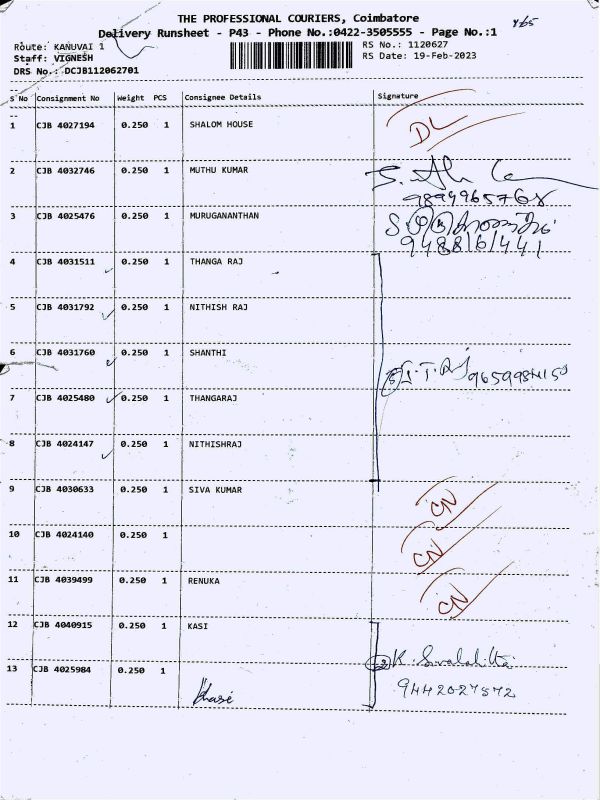 THE PROFESSIONAL COURIERS, Coimbatore
Delivery Runsheet - P43 - Phone No.:0422-3505555 - Page No.:1
Route: KANUVAI 1 RS No.: 1120627
Staff: VIGNESH RS Date: 19-Feb-2023
DRS No.: DCJB112062701
S No Consignment No Weight PCS Consignee Details Signature
1 CJB 4027194 0.250 1 SHALOM HOUSE DL
2 CJB 4032746 0.250 1 MUTHU KUMAR
3 CJB 4025476 0.250 1 MURUGANANTHAN
9488161441
4 CJB 4031511 0.250 1 THANGA RAJ
5 CJB 4031792 0.250 1 NITHISH RAJ
6 CJB 4031760 0.250 1 SHANTHI
7 CJB 4025480 0.250 1 THANGARAJ
8 CJB 4024147 0.250 1 NITHISHRAJ
9 CJB 4030633 0.250 1 SIVA KUMAR CN
10 CJB 4024140 0.250 1 CN
11 CJB 4039499 0.250 1 RENUKA CN
12 CJB 4040915 0.250 1 KASI
13 CJB 4025984 0.250 1
9442027572